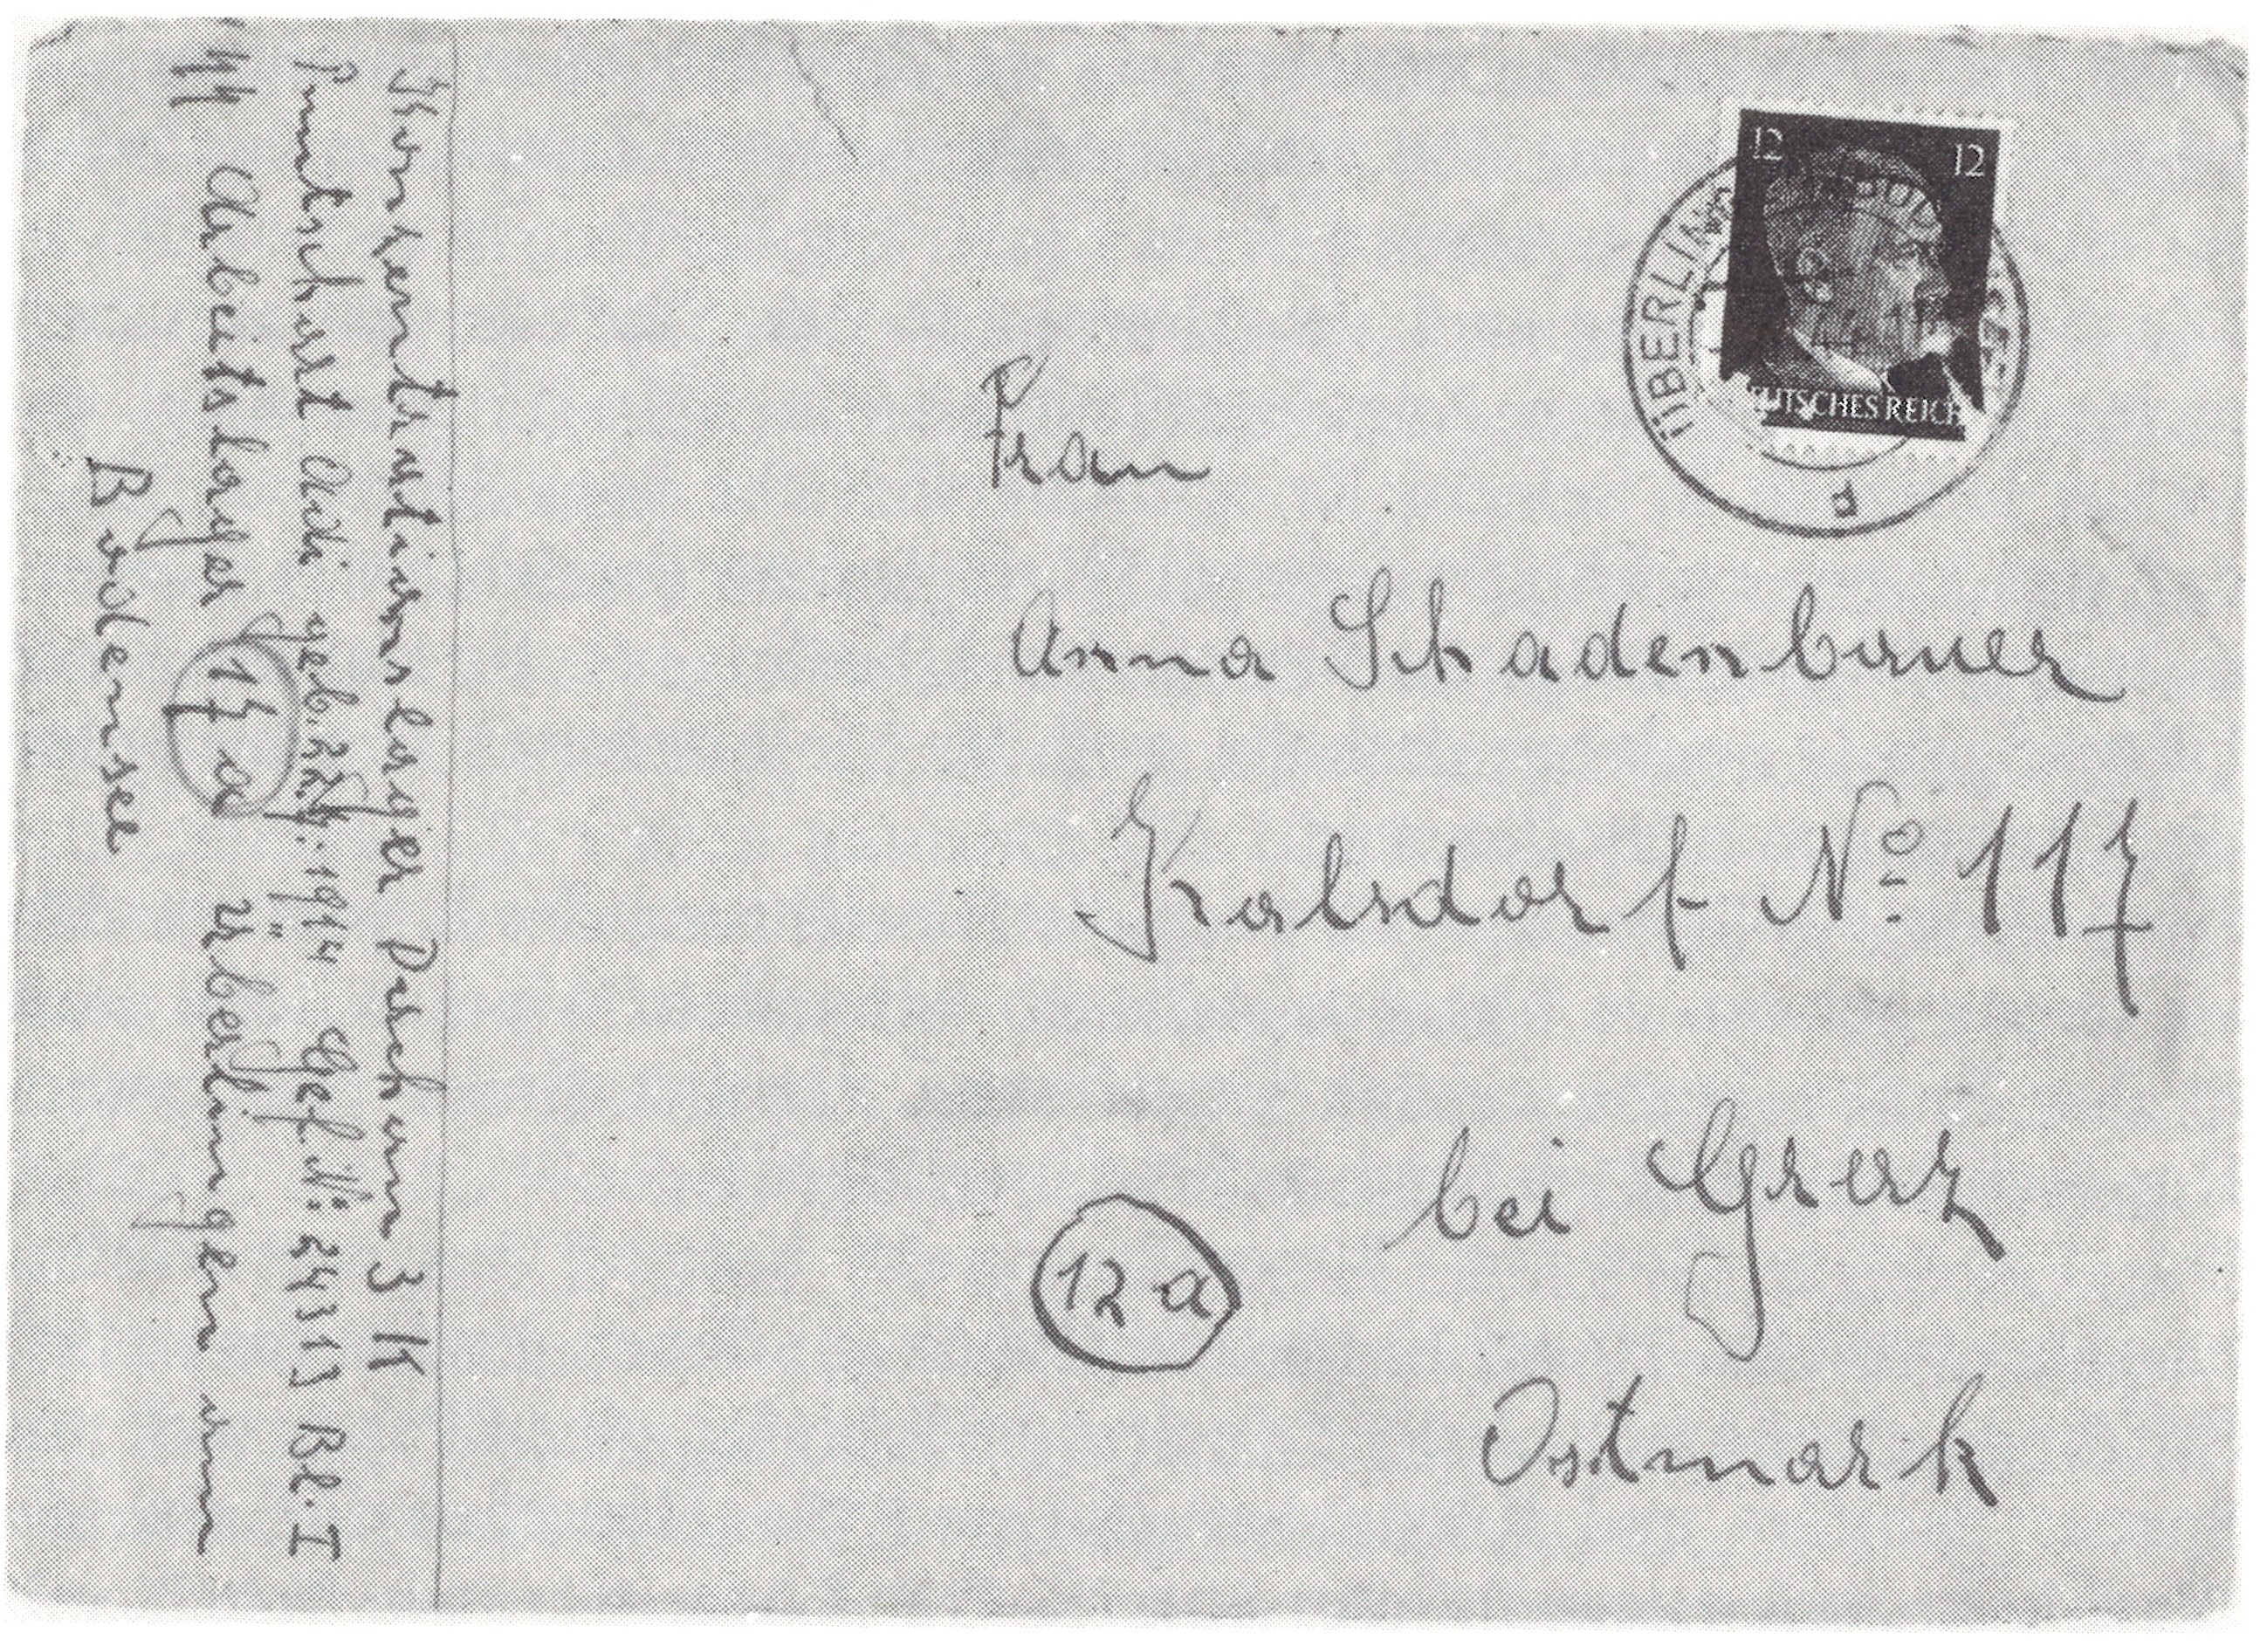 Konzentrationslager Dachau 3 K
Puntschart Adi geb. 1914 Gef. N: 24313 Bl. I
SS Arbeitslager 17 a Überlingen am
Bodensee
12 12
DEUTSCHES REICH
ÜBERLINGEN
Frau
Anna Schadenbauer
Kalsdorf No 117
bei Graz
12 a
Ostmark